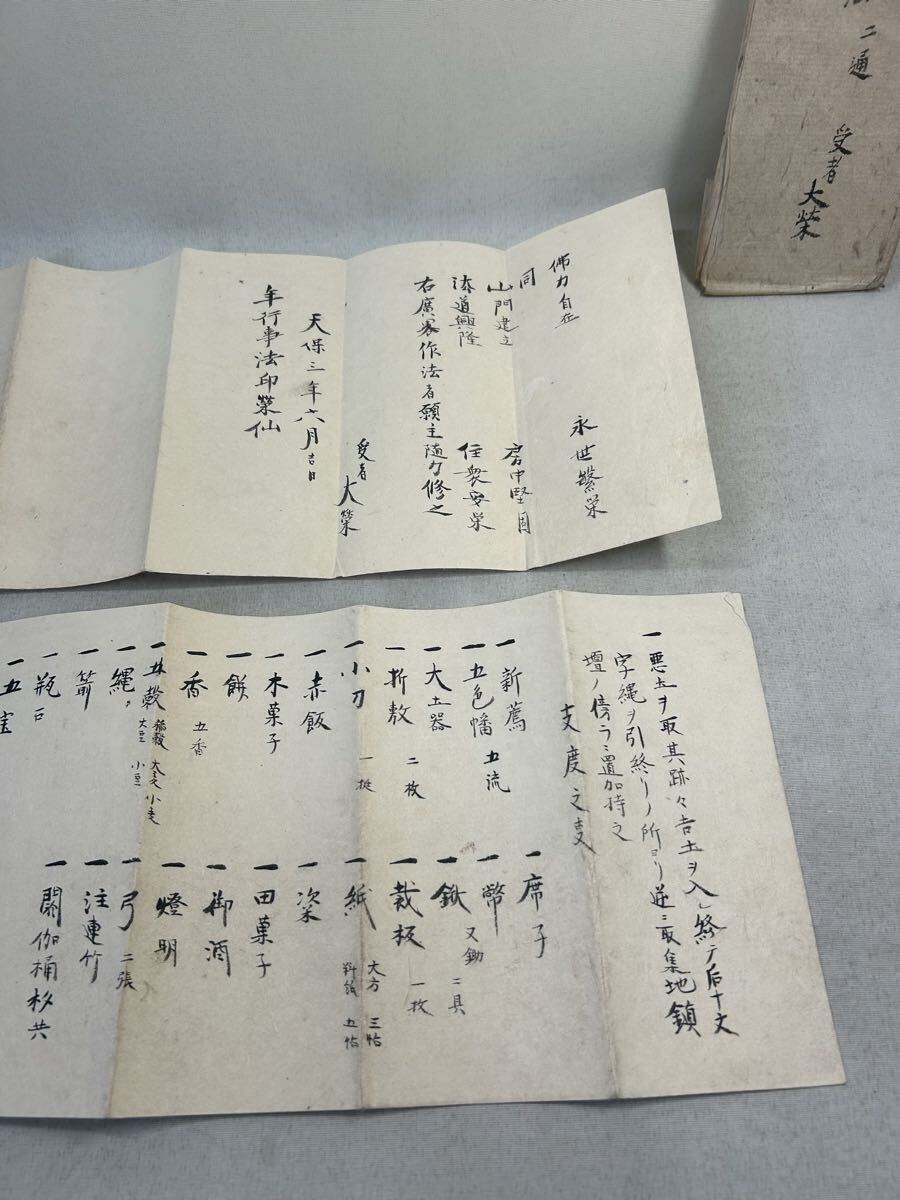 二通
受者 大榮
佛力自在 永世繁栄
同
山門建立 房中堅固
法道興隆 住衆安栄
右廣畧作法者願主随力修之
受者 大榮
天保三年六月吉日
年行事法印榮仙
一悪土ヲ取其跡々吉土ヲ入終テ后十文
字縄ヲ引終リノ所ヨリ逆ニ取集地鎮
壇ノ傍ラニ置加持之
支度之事
一新薦 一席子
一五色幡 五流 一幣
一大土器 一鍬 又鋤 二具
一折敷 二枚 一裁板 一枚
一小刀 一挺 一紙 大方 三帖 五帖
一赤飯 一粢
一木菓子 一田菓子
一餅 一御酒
一香 五香 一燈明
一五穀 稲穀 大麦 小麦 大豆 小豆 一弓 二張
一縄 一注連竹
一箭 一閼伽桶杓共
一瓶
一五宝